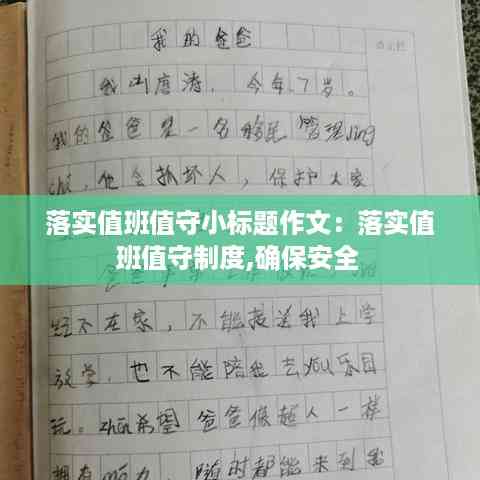 我的爸爸
我叫唐涛，今年7岁。
我的爸爸是一名移民管理jing
cha，他会抓坏人，保护大家
落实值班值守小标题作文：落实值
班值守制度,确保安全
经不在家，不能接送我上学
放学，也不能陪我去you乐园
玩。zhēn希望爸爸像超人一样
拥有mó力，随时都能来到我